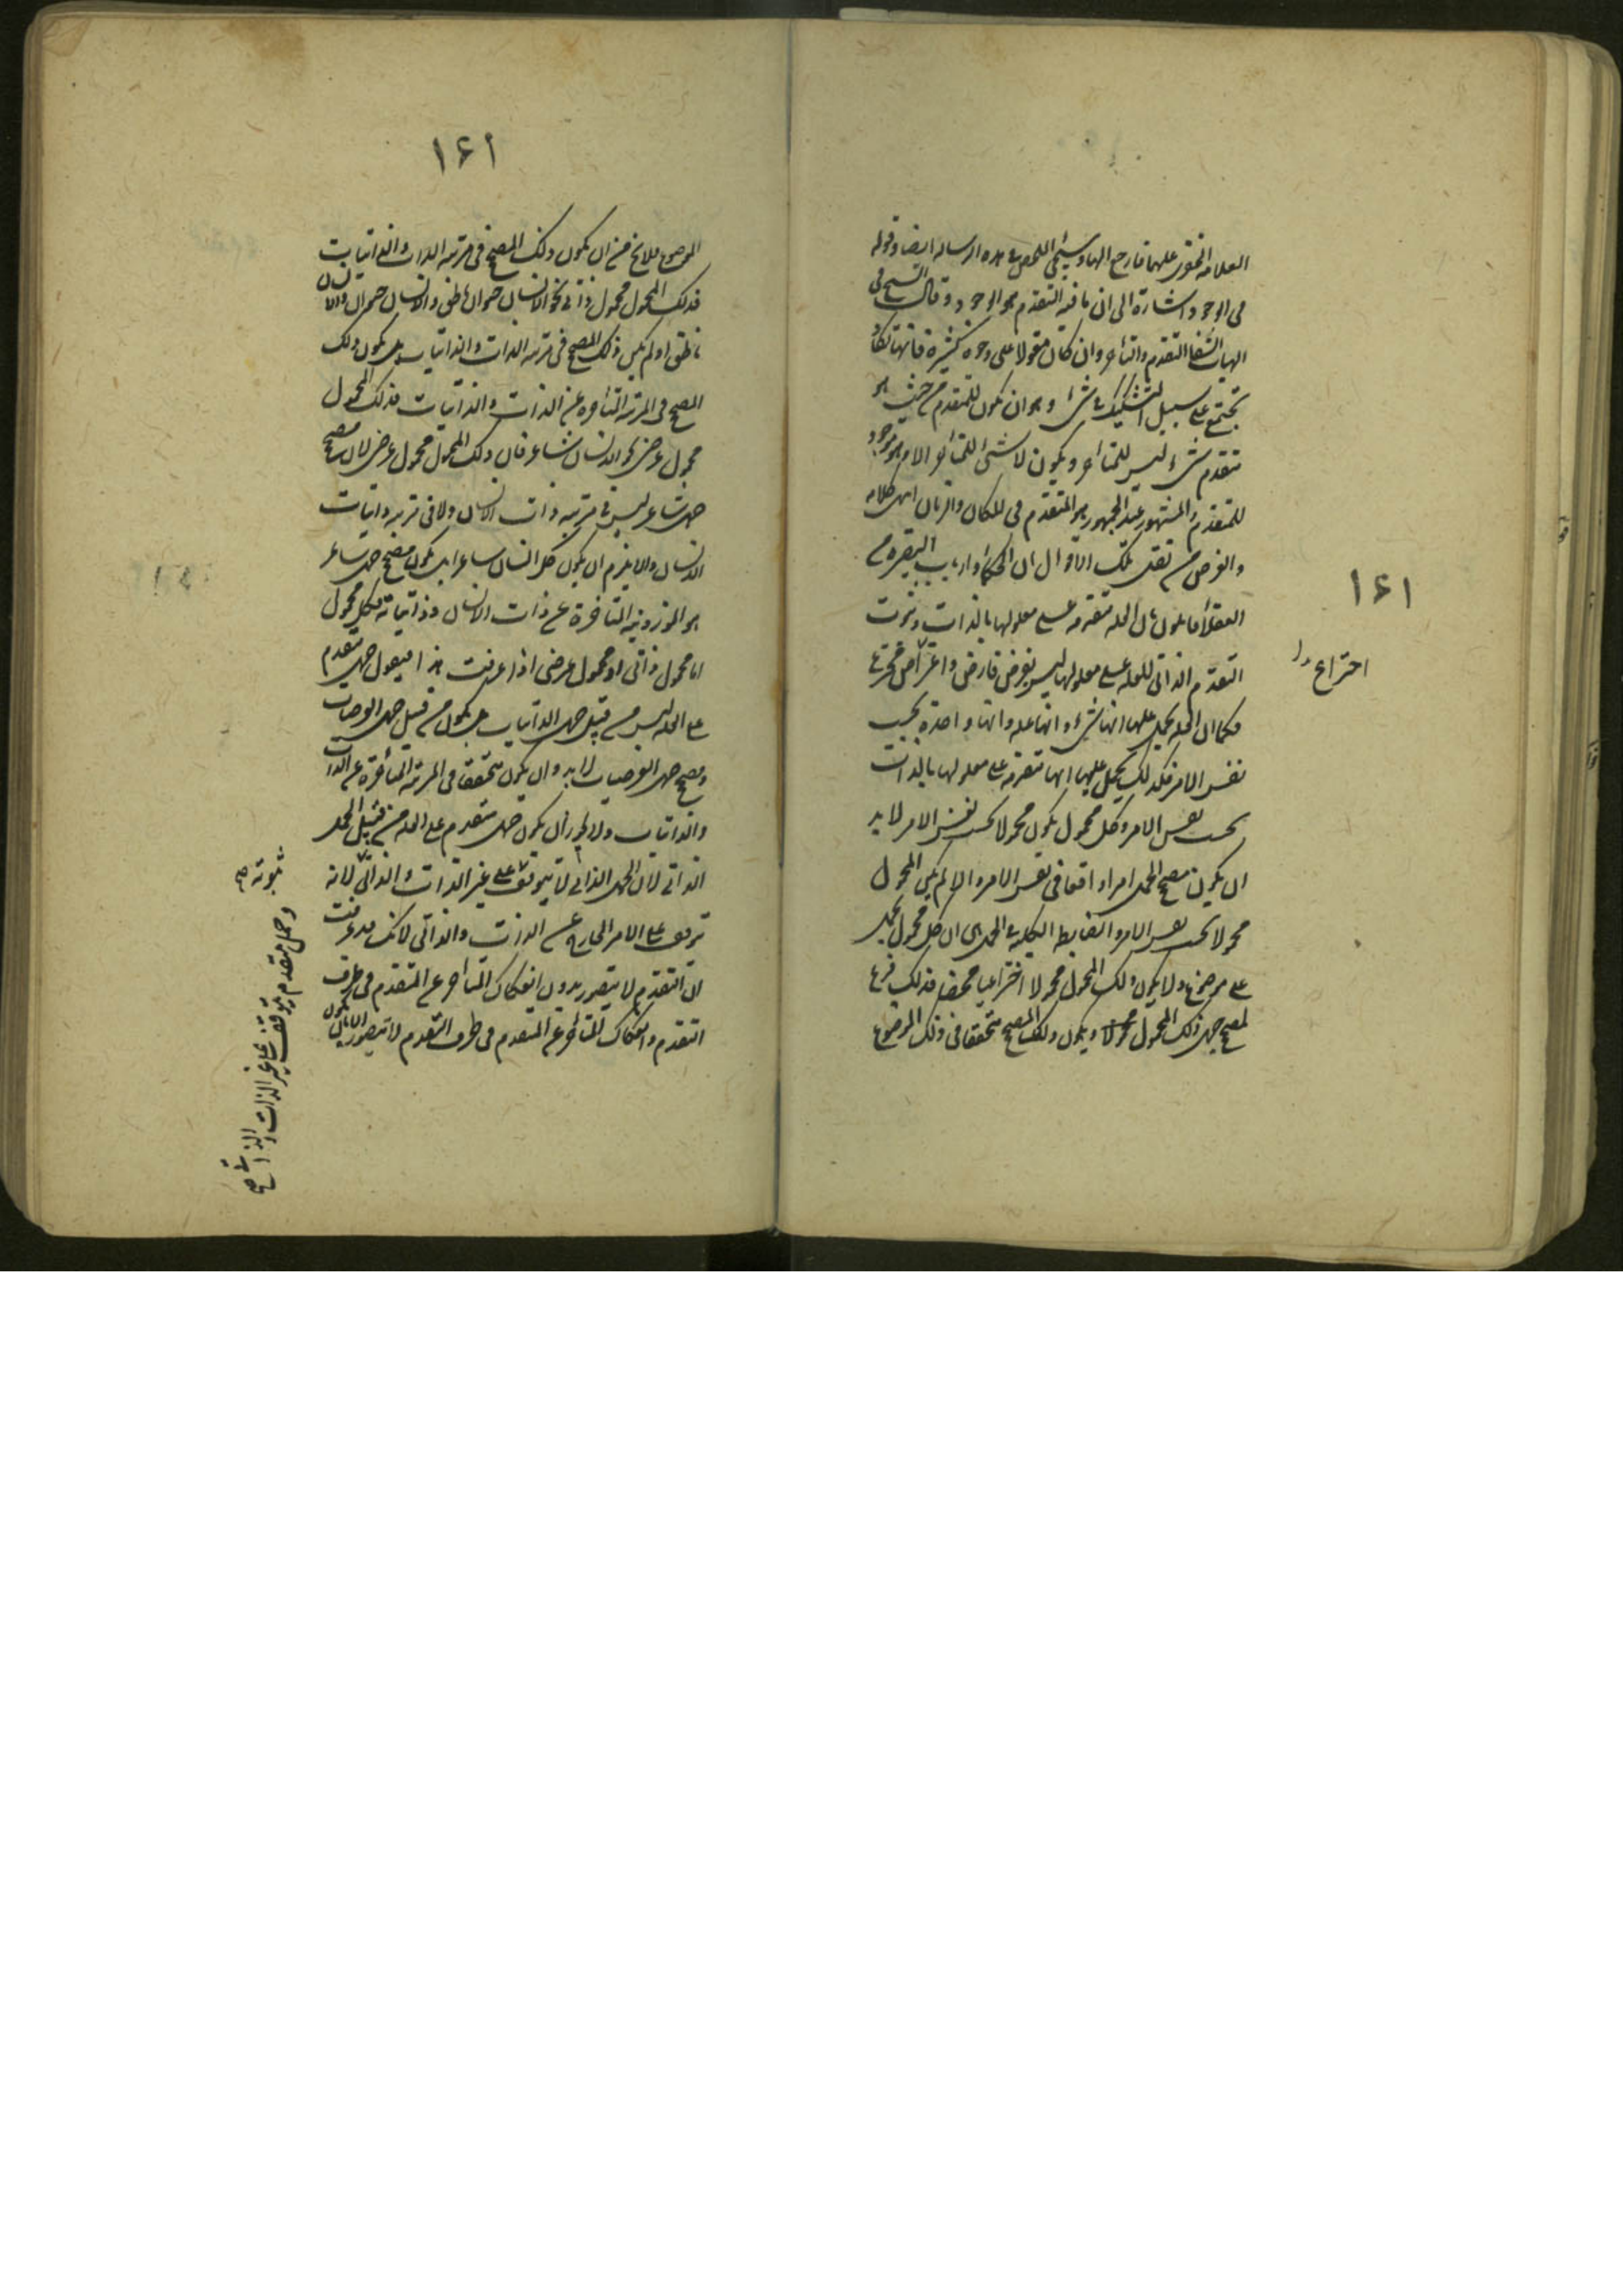 العلامة الخفرى عليهما فارجع اليها وسيجئ اللمعى فى هذه الرسالة ايضا وقوله
فى الوجود اشارة الى ان ما فيه التقدم هو الوجود وقال الشيخ فى
الهيات الشفا التقدم والتاخر وان كان مقولا على وجوه كثيرة فانها تكاد
تجتمع على سبيل التشكيك فى شئ وهو ان يكون للمتقدم من حيث هو
متقدم شئ ليس للمتاخر ويكون لا شئ للمتاخر الا وهو موجود
للمتقدم والمشهور عند الجمهور هو المتقدم فى المكان والزمان انتهى كلامه
والغرض من نقل تلك الاقوال ان الحكماء وارباب البصيرة من
العقلاء قايلون بان العلة متقدمة على معلولها بالذات وثبوت
التقدم الذاتى للعلة على معلولها ليس بفرض فارض واختراع مخترع
فكما ان العلة يحمل عليها انها شئ وانها علة وانها واحدة بحسب
نفس الامر فكذلك يحمل عليها انها متقدمة على معلولها بالذات
بحسب نفس الامر وكل محمول يكون محمولا بحسب نفس الامر لا بد
ان يكون مصحح الحمل امرا واقعا فى نفس الامر والا لم يكن المحمول
محمولا بحسب نفس الامر والضابطة الكلية فى الحمل هى ان كل محمول يحمل
على موضوع ولا يكون ذلك المحمول محمولا اختراعيا محضا فذلك فرع
لمصحح حمل ذلك المحمول ويكون ذلك المصحح متحققا فى ذلك الموضوع
١٤١
اختراع
١٤١
الموضوع فلا يخ من ان يكون ذلك المصحح فى مرتبة الذات والذاتيات
فذلك المحمول محمول ذاتى نحو الانسان حيوان ناطق والانسان حيوان والانسان
ناطق او لم يكن ذلك المصحح فى مرتبة الذات والذاتيات بل يكون ذلك
المصحح فى المرتبة المتاخرة عن الذات والذاتيات فذلك المحمول
محمول عرضى نحو الانسان شاعر فان ذلك المحمول محمول عرضى لان مصحح
حمل شاعر ليس فى مرتبة ذات الانسان ولا فى مرتبة ذاتيات
الانسان والا يلزم ان يكون كل انسان شاعرا بل يكون مصحح حمل شاعر
هو الموزونية المتاخرة عن ذات الانسان وذاتياته فكل محمول
اما محمول ذاتى او محمول عرضى اذا عرفت هذا فيقول حمل متقدم
على العلة ليس من قبيل حمل الذاتيات بل يكون من قبيل حمل العرضيات
ومصحح حمل العرضيات لا بد وان يكون متحققا فى المرتبة المتأخرة عن الذات
والذاتيات ولا يجوز ان يكون حمل متقدم على العلة من قبيل الحمل
الذاتى لان الحمل الذاتى لا يتوقف على غير الذات والذاتى لانه
توقف على الامر الخارج عن الذات والذاتى لانك قد عرفت
ان التقدم لا يتصور بدون انفكاك المتاخر عن المتقدم فى ظرف
التقدم وانفكاك المتاخر عن المتقدم فى ظرف التقدم لا يتصور الا بان يكون
ثبوته صح
وحمل متقدم يتوقف على غير الذات والذاتى صح